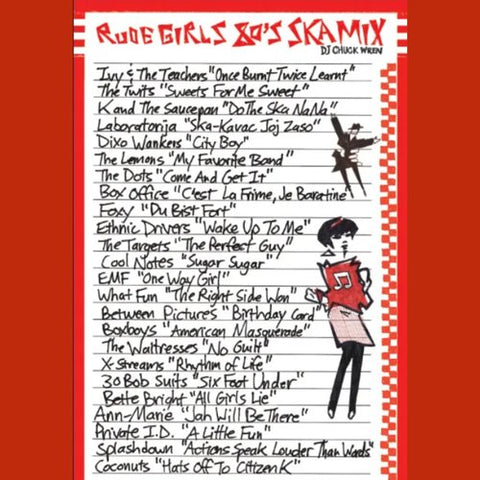 RUDE GIRLS 80'S SKA MIX
DJ CHUCK WREN
Ivy & The Teachers "Once Burnt Twice Learnt"
The Twits "Sweets For Me Sweet"
K and The Saucepan "Do The Ska Na Na"
Laboratorija "Ska-Kavac Joj Zaso"
Dixo Wankers "City Boy"
The Lemons "My Favorite Band"
The Dots "Come And Get It"
Box Office "C'est La Frime, Je Baratine"
Foxy "Du Bist Fort"
Ethnic Drivers "Wake Up To Me"
The Targets "The Perfect Guy"
Cool Notes "Sugar Sugar"
EMF "One Way Girl"
What Fun "The Right Side Won"
Between Pictures "Birthday Card"
Boxboys "American Masquerade"
The Waitresses "No Guilt"
X-Streams "Rhythm of Life"
30 Bob Suits "Six Foot Under"
Bette Bright "All Girls Lie"
Ann-Marie "Jah Will Be There"
Private I.D. "A Little Fun"
Splashdown "Actions Speak Louder Than Words"
Coconuts "Hats Off To Citizen K"